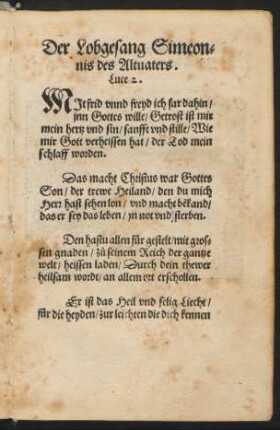 Der Lobgesang Simeon-
nis des Altuaters.
Luce 2.
MIt frid vnnd freyd ich far dahin/
jnn Gottes wille/ Getrost ist mir
mein hertz vnd sin/ sanfft vnd stille/ Wie
mir Gott verheissen hat/ der Tod mein
schlaff worden.
Das macht Christus war Gottes
Son/ der trewe Heiland/ den du mich
Herr hast sehen lon/ vnd macht bekand/
das er sey das leben/ jn not vnd sterben.
Den hastu allen für gestelt/ mit gros-
sen gnaden/ zů seinem Reich der gantze
welt/ heissen laden/ Durch dein thewer
heilsam wordt/ an allem ort erschollen.
Er ist das Heil vnd selig Liecht/
für die heyden/ zur leichten die dich kennen